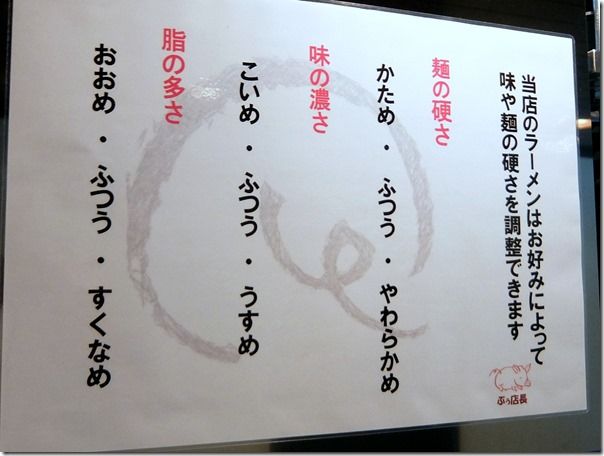 当店のラーメンはお好みによって
味や麺の硬さを調整できます
ぶぅ店長
麺の硬さ
かため・ふつう・やわらかめ
味の濃さ
こいめ・ふつう・うすめ
脂の多さ
おおめ・ふつう・すくなめ